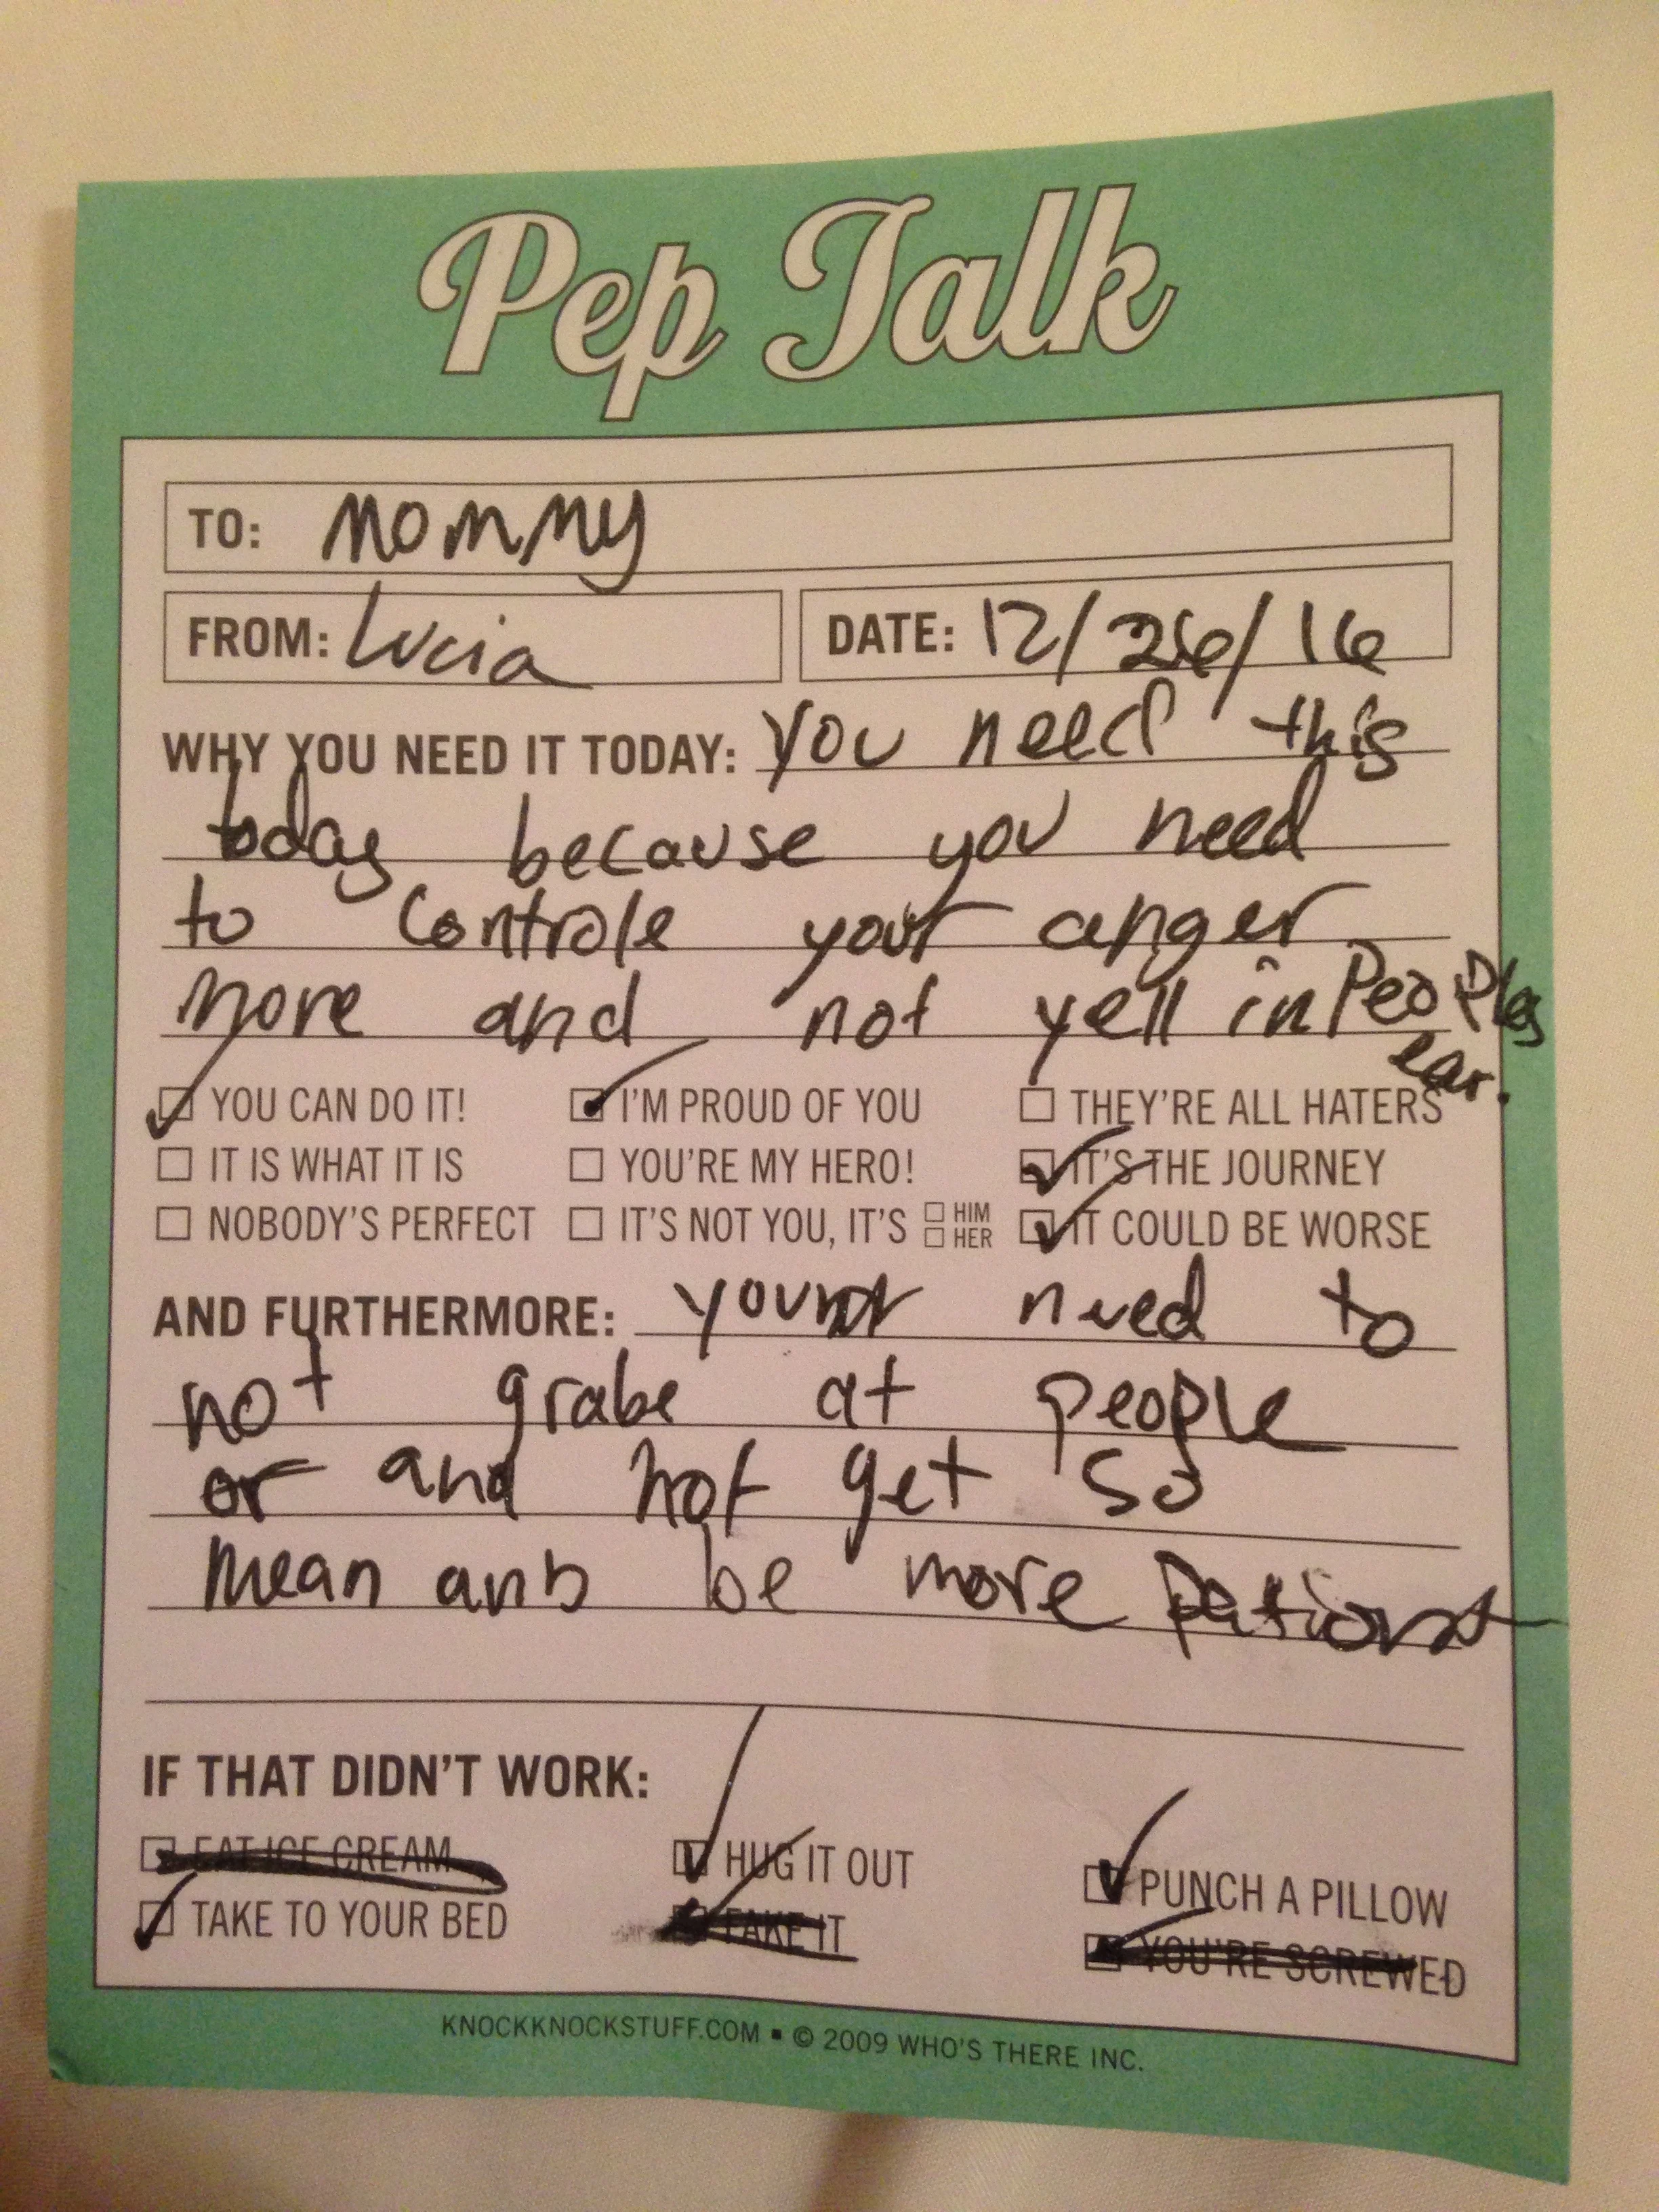 Pep Talk
TO: Mommy
FROM: Lucia DATE: 12/26/16
WHY YOU NEED IT TODAY: You need this
today because you need
to controle your anger
more and not yell in Peoples
ear.
YOU CAN DO IT! I'M PROUD OF YOU THEY'RE ALL HATERS
IT IS WHAT IT IS YOU'RE MY HERO! IT'S THE JOURNEY
NOBODY'S PERFECT IT'S NOT YOU, IT'S HIM HER IT COULD BE WORSE
AND FURTHERMORE: need to
not grabe at people
or and not get so
mean anb be more
IF THAT DIDN'T WORK:
EAT ICE CREAM HUG IT OUT PUNCH A PILLOW
TAKE TO YOUR BED FAKE IT YOU'RE SCREWED
KNOCKKNOCKSTUFF.COM ▪ © 2009 WHO'S THERE INC.